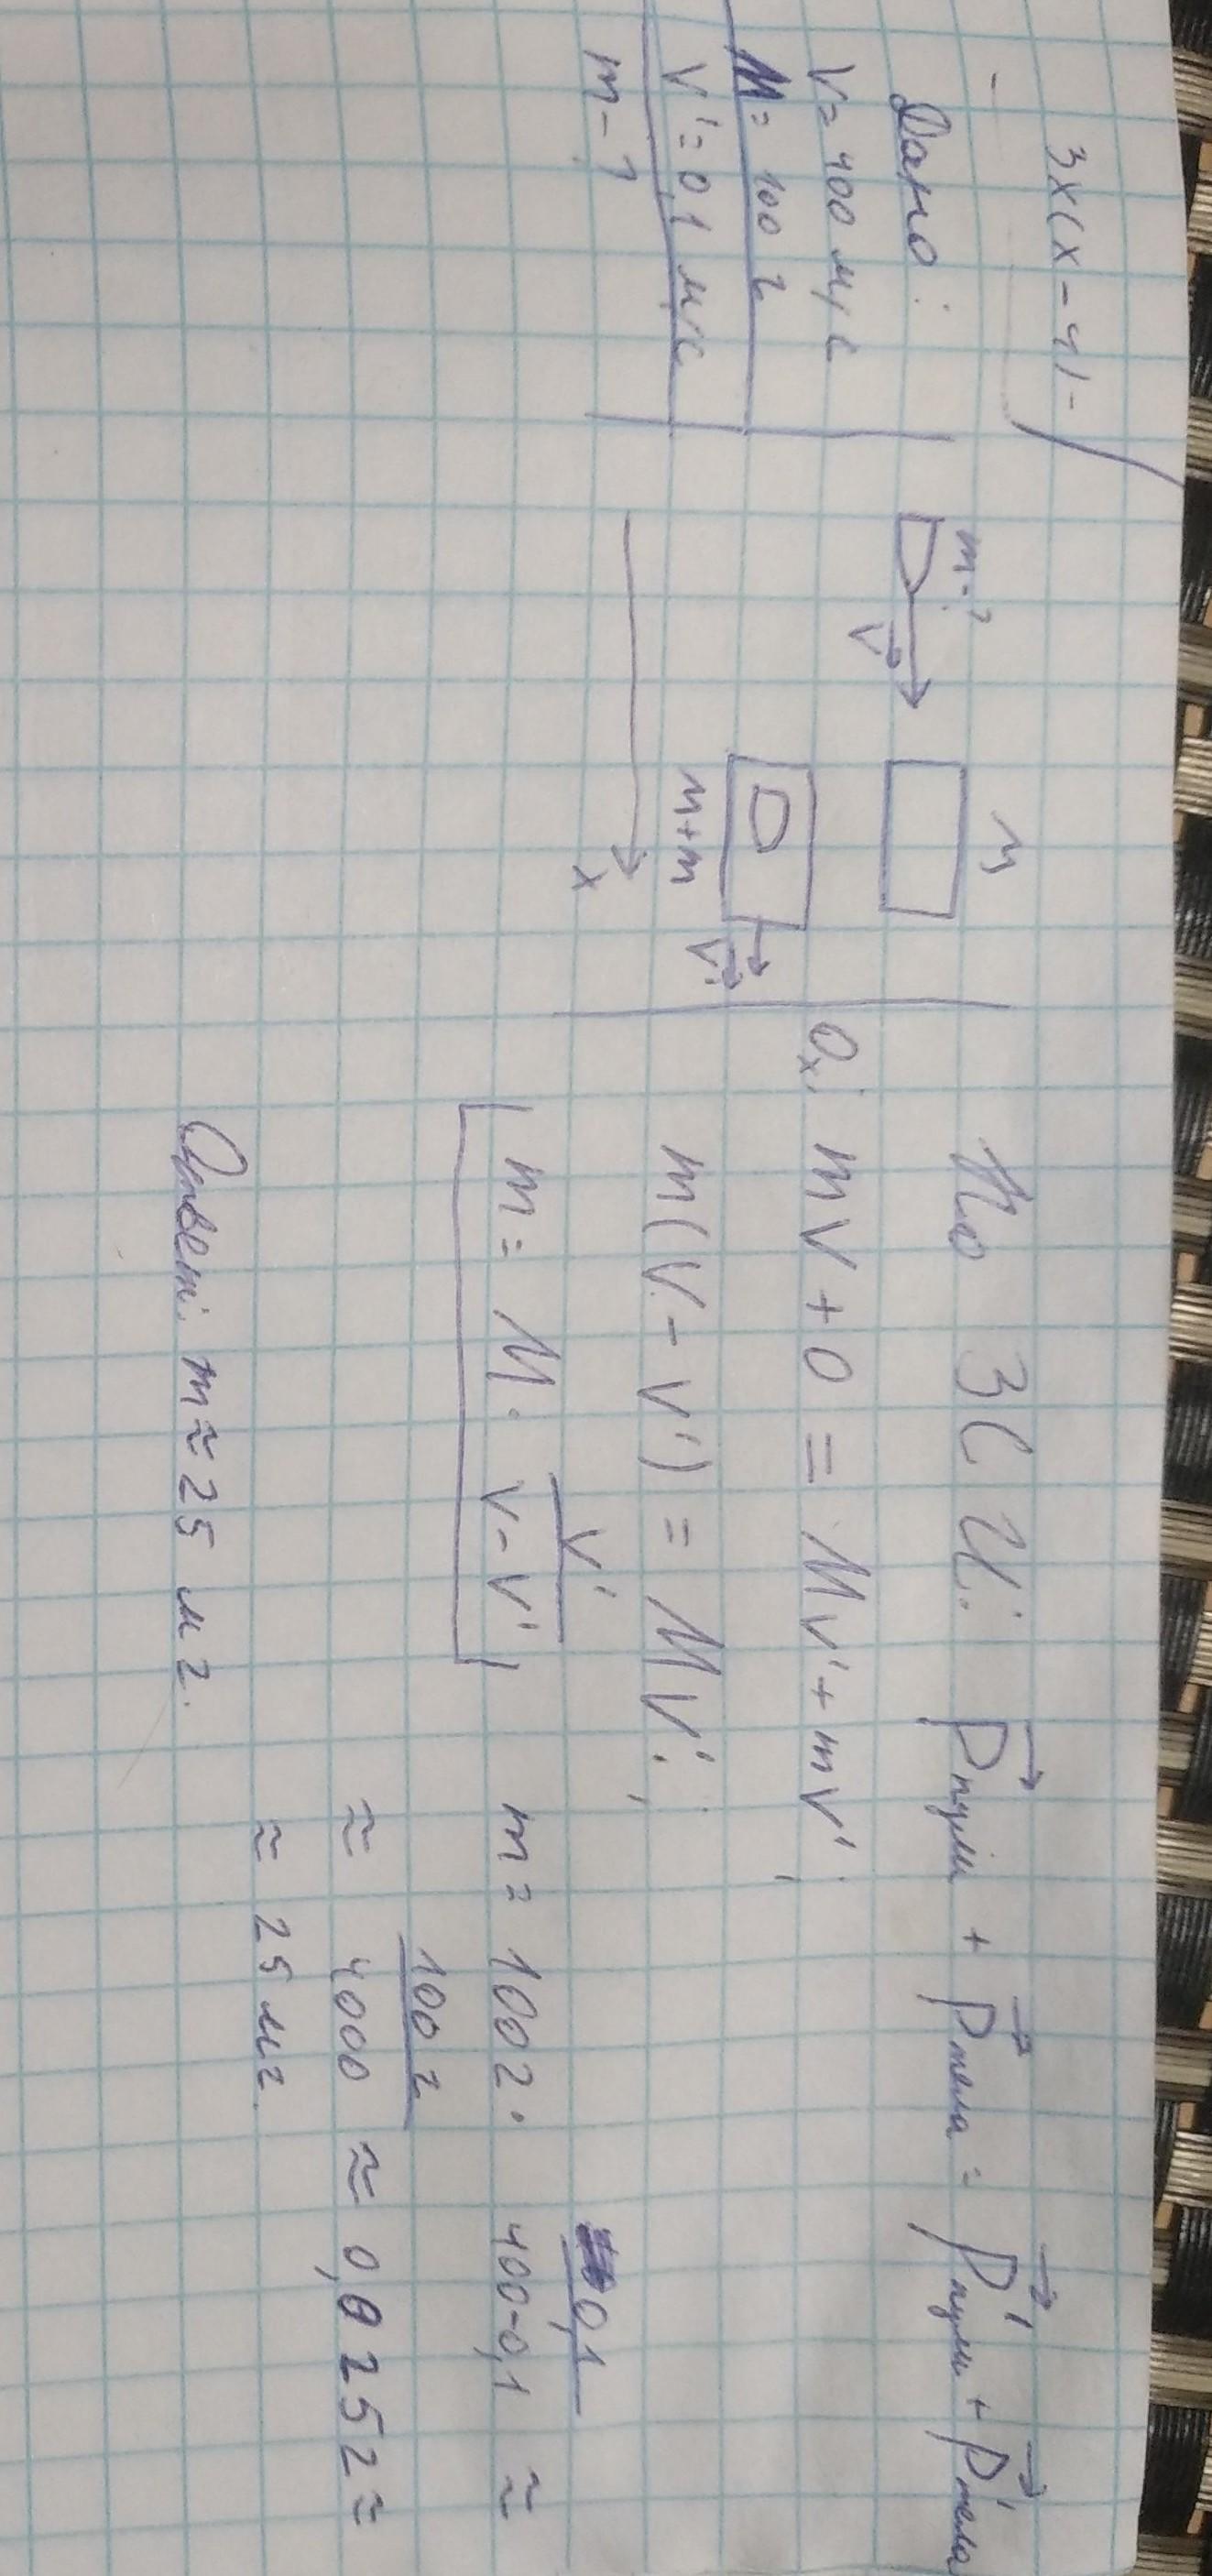 3x(x-4)-
Дано:
V = 400 м/с
M = 100 г
V' = 0,1 м/с
m - ?
m-?
V
M
M+m
V'
x
По ЗСИ: Pпули + Pтела = P'пули + P'тела
Ox: mV + 0 = MV' + mV';
m(V - V') = MV';
m = M · V'/(V - V')
m = 100г · 0,1/(400-0,1) ≈
≈ 100г/4000 ≈ 0,025г ≈
≈ 25 мг.
Ответ: m ≈ 25 мг.